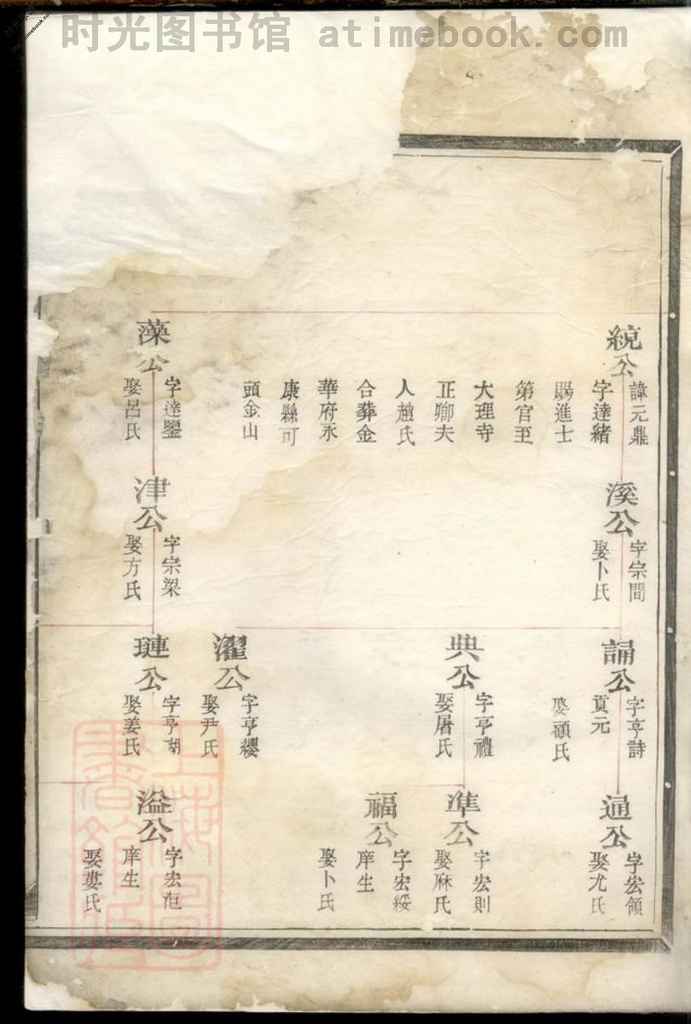 时光图书馆 atimebook.com
統公
諱元鼎
字達緒
賜進士
第官至
大理寺
正卿夫
人趙氏
合葬金
華府永
康縣可
頭金山
藻公
字達鑒
娶呂氏
溪公
字宗間
娶卜氏
津公
字宗梁
娶方氏
誦公
字亨詩
貢元
娶顧氏
典公
字亨禮
娶屠氏
濯公
字亨纓
娶尹氏
璉公
字亨瑚
娶姜氏
通公
字宏領
娶尤氏
準公
字宏則
娶麻氏
福公
字宏綏
庠生
娶卜氏
溢公
字宏
庠生
娶婁氏